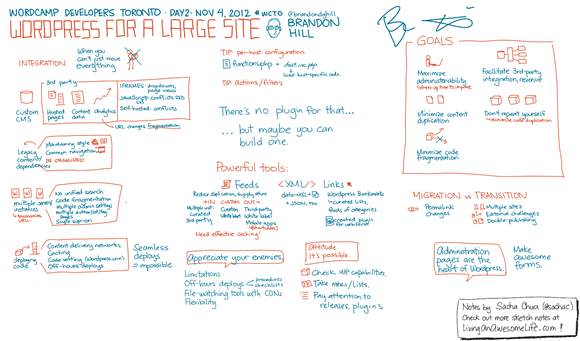 WORDCAMP DEVELOPERS TORONTO · DAY 2 · NOV 4, 2012 #WCTO
WORDPRESS FOR A LARGE SITE
@brandondhill
BRANDON
HILL
INTEGRATION
When you
can't just move
everything
Custom
CMS
3rd party
Hosted
pages
Content
data
analytics
IFRAMES: dropdowns,
page views
JavaScript: conflicts, SEO
Self-hosted: conflicts
URL changes, fragmentation
Legacy
content/
dependencies
Maintaining style
Common navigation
multiple server
instances
No unified search
Code fragmentation
Multiple admin settings
Multiple author/tag
pages
Single sign-on
deploying
code
Content delivery networks
Caching
Off-hours deploys
Seamless
deploys
= impossible
TIP: per-host configuration
functions.php +
load host-specific code.
TIP: actions/filters
There's no plugin for that...
... but maybe you can
build one.
Powerful tools:
Feeds
IN
CUSTOM
OUT
Curated
3rd party
White label
Mobile apps
Need effective caching!
<XML/>
+ JSON, etc
Links
Wordpress Bookmarks
curated lists,
feeds of categories
created plugin
for
Appreciate your enemies.
Limitations
Off-hours deploys
procedures
checklists
File-watching tools with CDNs
Flexibility
Attitude:
It's possible.
Check WP capabilities.
Take notes/Lists.
Pay attention to
releases, plugins
GOALS
Maximize
administerability
Facilitate 3rd-party
integration, reinvent
Minimize content
duplication
Don't repeat yourself
minimize code duplication
Minimize code
fragmentation
MIGRATION vs TRANSITION
Permalink
changes
Multiple sites
Editorial challenges
Double-publishing
Administration
pages are the
heart of Wordpress.
Make
awesome
forms.
Notes by Sacha Chua (@sachac)
Check out more sketch notes at
LivingAnAwesomeLife.com !